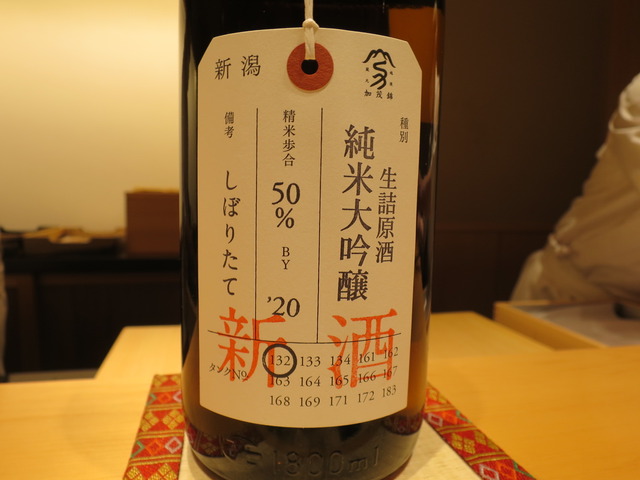 新潟
加茂錦
種別
生詰原酒
純米大吟醸
精米歩合
50%
BY
'20
備考
しぼりたて
新酒
タンクNo.
132 133 134 161 162
163 164 165 166 167
168 169 171 172 183
1800ml